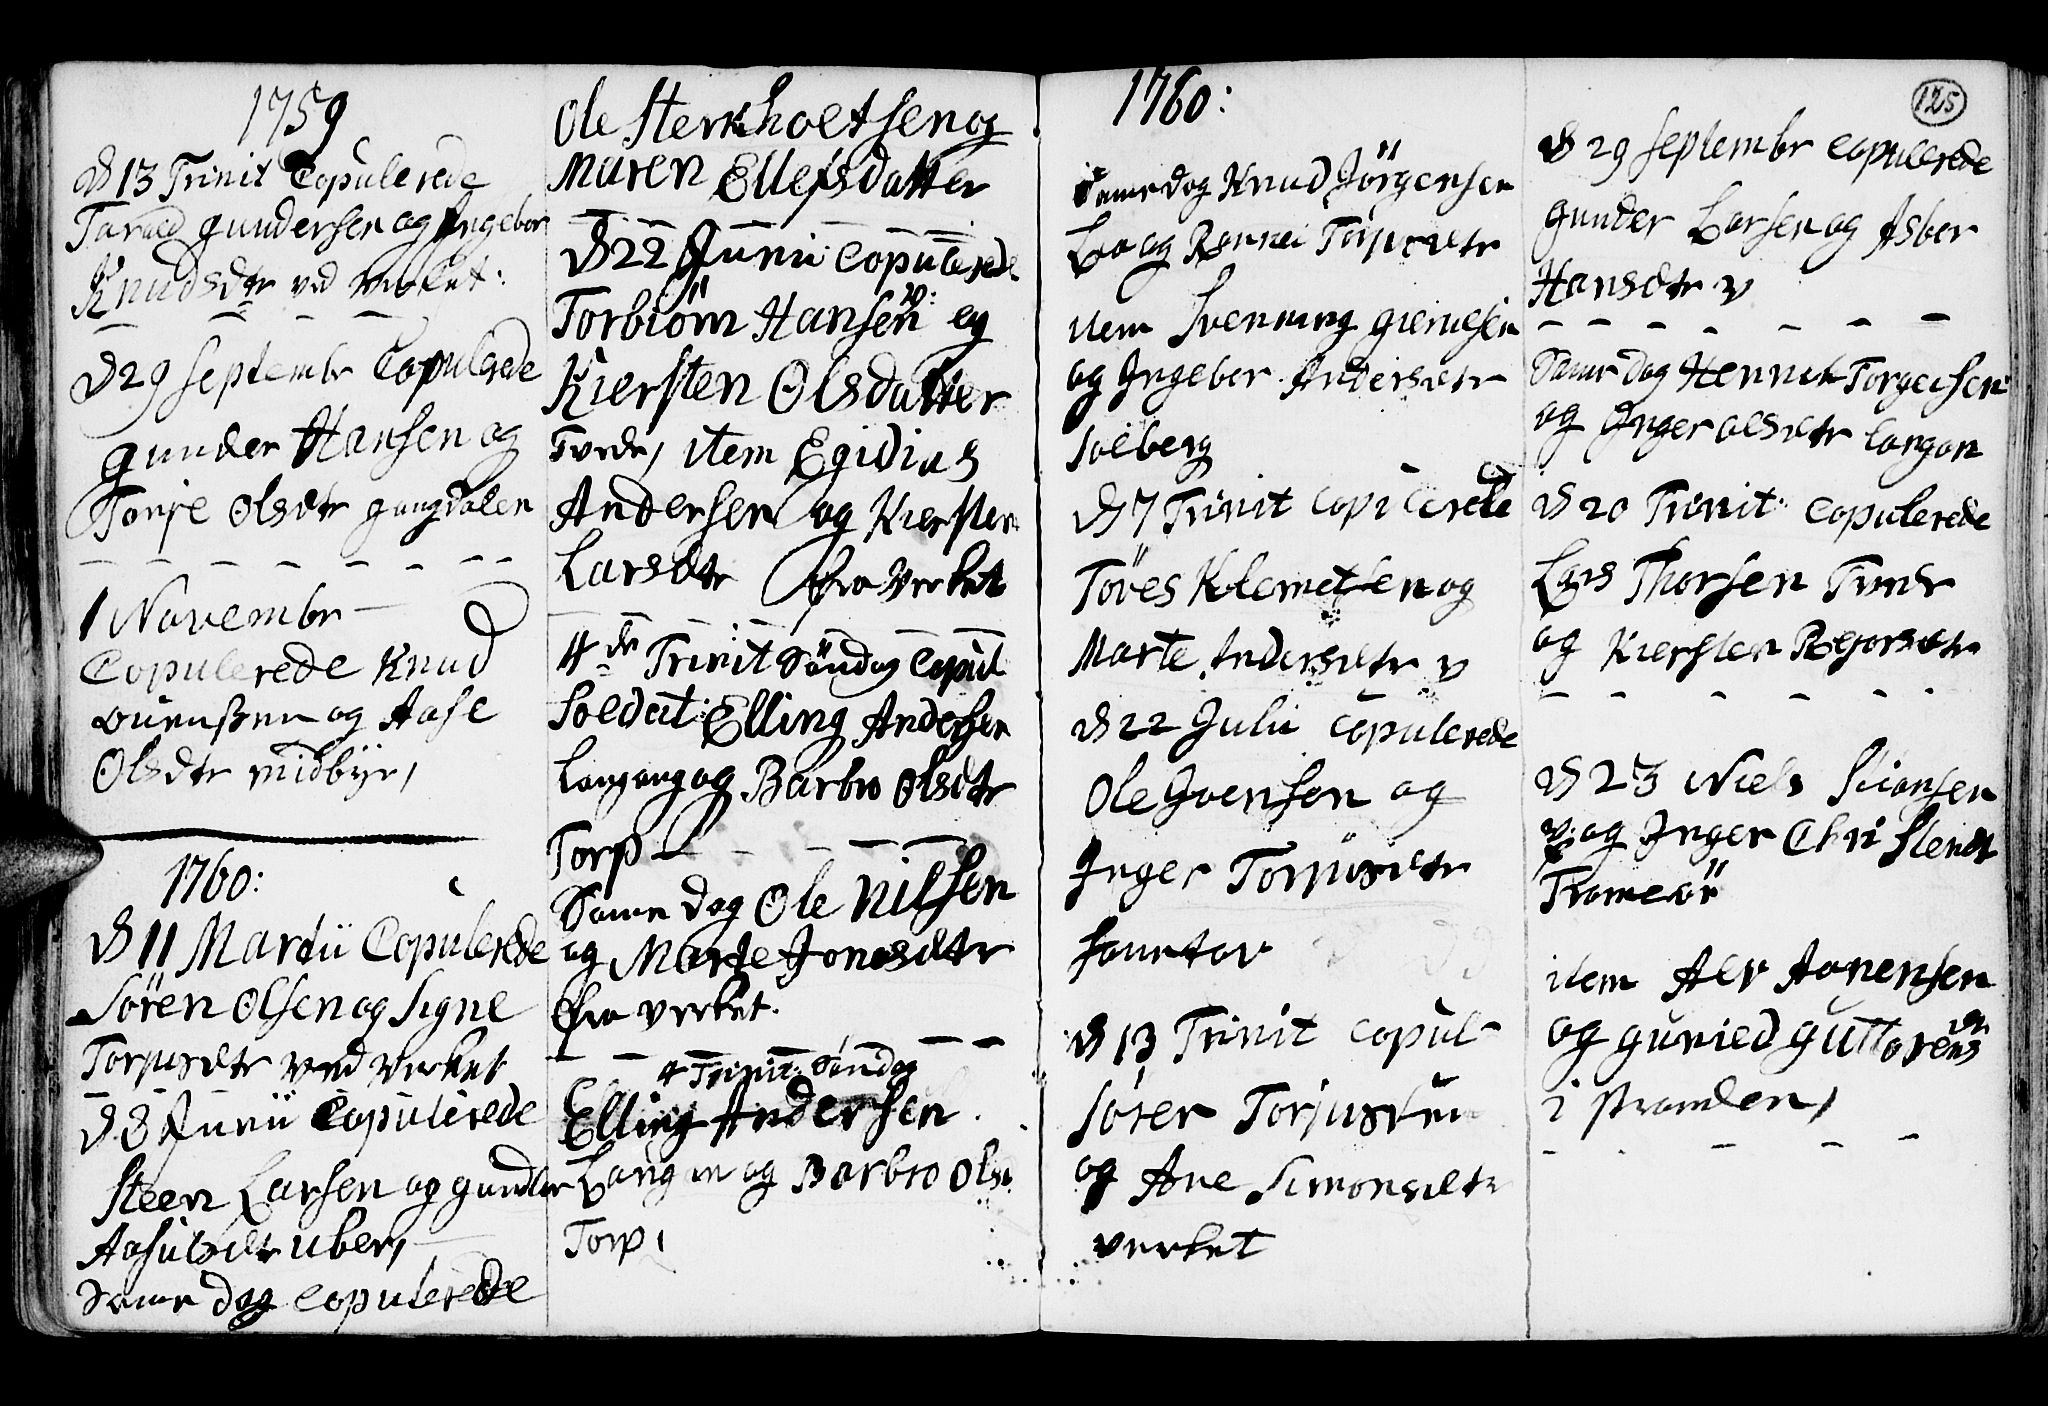 1759
D 13 Trinit Copulerede
Tarald gundersen og Ingebor
Knudsdtr ved verket:
D 29 septembr Copulerede
gunder Hansen og
Tonje Olsdtr gangdalen
1 Novembr
Copulerede Knud
ouensøen og Aase
Olsdtr midbye,
1760:
D 11 Martii Copulerede
Sören Olsen og Signe
Torjusdtr ved verket
D 8 Junii Copulerede
Steen Larsen og gundbor
uber,
Same dag copulerede
Ole Sterkholtsen og
Maren Ellefsdatter
D 22 Junii Copulerede
Torbiörn Hansen v: og
Kiersten Olsdatter
item Egidius
Andersen og Kiersten
Larsdtr fra verket
4de Trinit Söndag Copul
Soldat Elling Andersen
Langang og Barbro Olsdtr
Torp
Same dag Ole Nilsen
og Marte Jonasdtr
fra verket.
4 Trinit: Söndag
Elling Andersen
Lang og Barbro Ols
Torp,
1760:
125
Same dag Knud Jörgensen
Lio og Torjusdtr
item Svenning
og Ingebor Andersdtr
Solberg
D 7 Trinit copulerede
Töves Klemetsen og
Marte Andersdtr v
D 22 Julii copulerede
Ole Ivenson og
Inger Torjusdtr
D 13 Trinit copul
Sören Torjussen
og Ane Simonsdtr
verket
D 29 septembr copulerede
gunder Larsen og Asbor
Hansdtr v
Same dag Henrich Torgersen
og Inger olsdtr langan
D 20 Trinit: copulerede
Lars Thorsen
og Kiersten
D 23 Niels
v: og Inger Christendt
Tromeöe
item Alv Aanensen
og guried guttorms dr
i stranden,